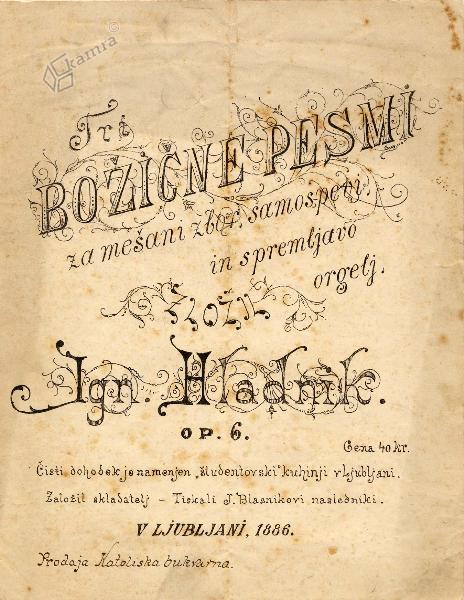 kamra
Tri
BOŽIČNE PESMI
za mešani zbor, samospevi,
in spremljavo
orgelj.
ZLOŽIL
Ign. Hladnik.
OP. 6.
Cena 40 kr.
Čisti dohodek je namenjen „študentovski“ kuhinji v Ljubljani.
Založil skladatelj – Tiskali J. Blasnikovi nasledniki.
V LJUBLJANI, 1886.
Prodaja Katoliška bukvarna.